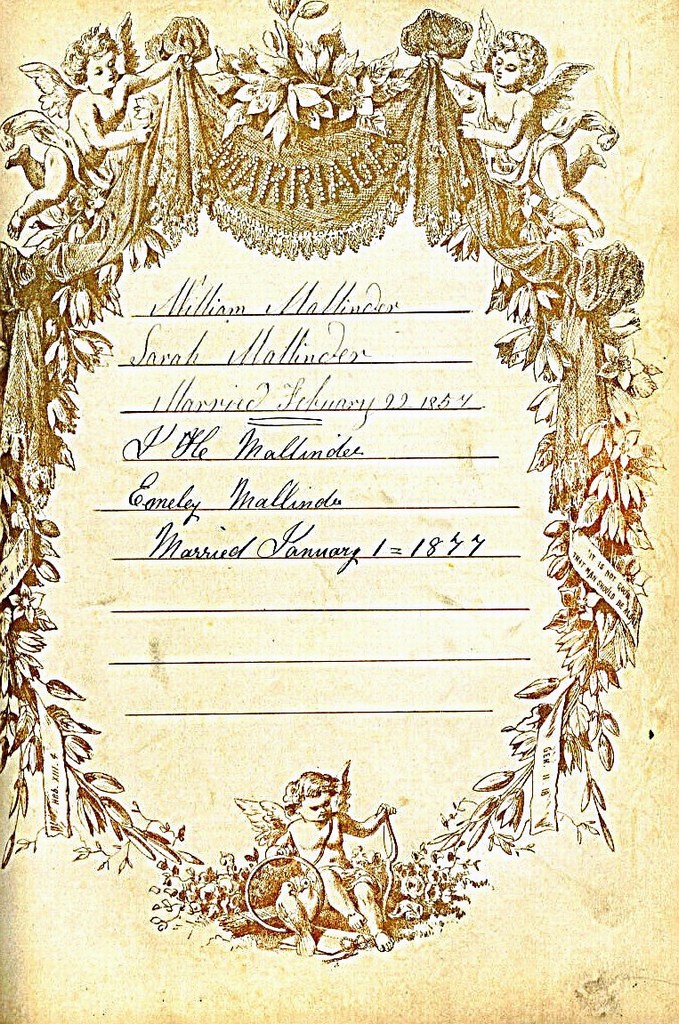 MARRIAGES
William Mallinder
Sarah Mallinder
Married Febuary 22 1857
J H Mallinder
Emeley Mallinder
Married January 1 = 1877
"IT IS NOT GOOD
THAT MAN SHOULD BE
HEB. XIII. 4.
GEN. II. 18